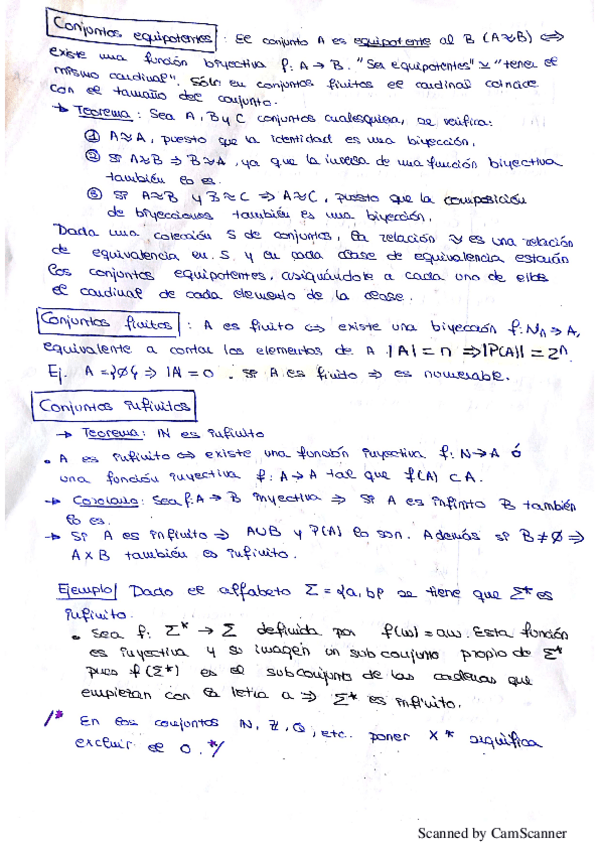 Conjuntos equipotentes : El conjunto A es equipotente al B (A≈B) ⇔
existe una función biyectiva f: A → B. "Ser equipotentes" ≃ "tener el
mismo cardinal". Sólo en conjuntos finitos el cardinal coincide
con el tamaño del conjunto.
→ Teorema : Sea A, B y C conjuntos cualesquiera, se verifica:
① A≈A, puesto que la identidad es una biyección.
② Si A≈B ⇒ B≈A, ya que la inversa de una función biyectiva
también lo es.
③ Si A≈B y B≈C ⇒ A≈C, puesto que la composición
de biyecciones también es una biyección.
Dada una colección S de conjuntos, la relación ≈ es una relación
de equivalencia en S y en cada clase de equivalencia estarán
los conjuntos equipotentes, asignándole a cada uno de ellos
el cardinal de cada elemento de la clase.
Conjuntos finitos : A es finito ⇔ existe una biyección f: Nn → A,
equivalente a contar los elementos de A |A| = n ⇒ |P(A)| = 2^n.
Ej. A = {∅} ⇒ |A| = 0 . Si A es finito ⇒ es numerable.
Conjuntos infinitos
→ Teorema: ℕ es infinito
• A es infinito ⇔ existe una función inyectiva f: N → A ó
una función inyectiva f: A → A tal que f(A) ⊂ A.
→ Corolario: Sea f: A → B inyectiva ⇒ Si A es infinito B también
lo es.
→ Si A es infinito ⇒ A∪B y P(A) lo son. Además si B ≠ ∅ ⇒
A x B también es infinito.
Ejemplo| Dado el alfabeto Σ = {a, b} se tiene que Σ* es
infinito.
• Sea f: Σ* → Σ definida por f(w) = aw. Esta función
es inyectiva y su imagen un subconjunto propio de Σ*
pues f(Σ*) es el subconjunto de las cadenas que
empiezan con la letra a ⇒ Σ* es infinito.
/* En los conjuntos ℕ, ℤ, ℚ, etc. poner X* significa
excluir el 0. */
Scanned by CamScanner